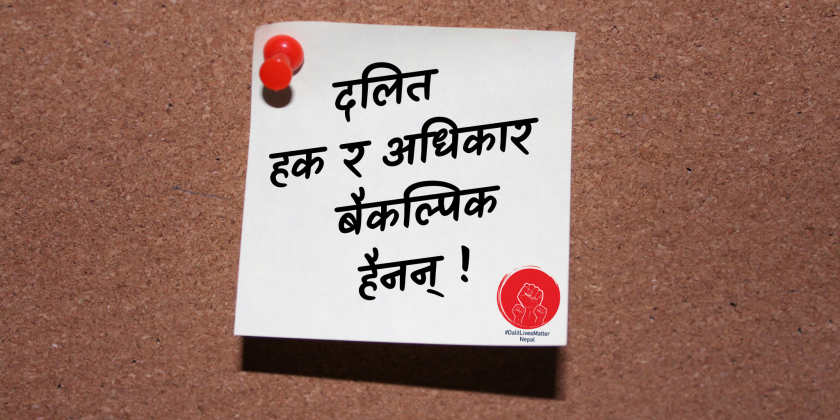 दलित
हक र अधिकार
बैकल्पिक
हैनन् !
#DalitLivesMatter
Nepal